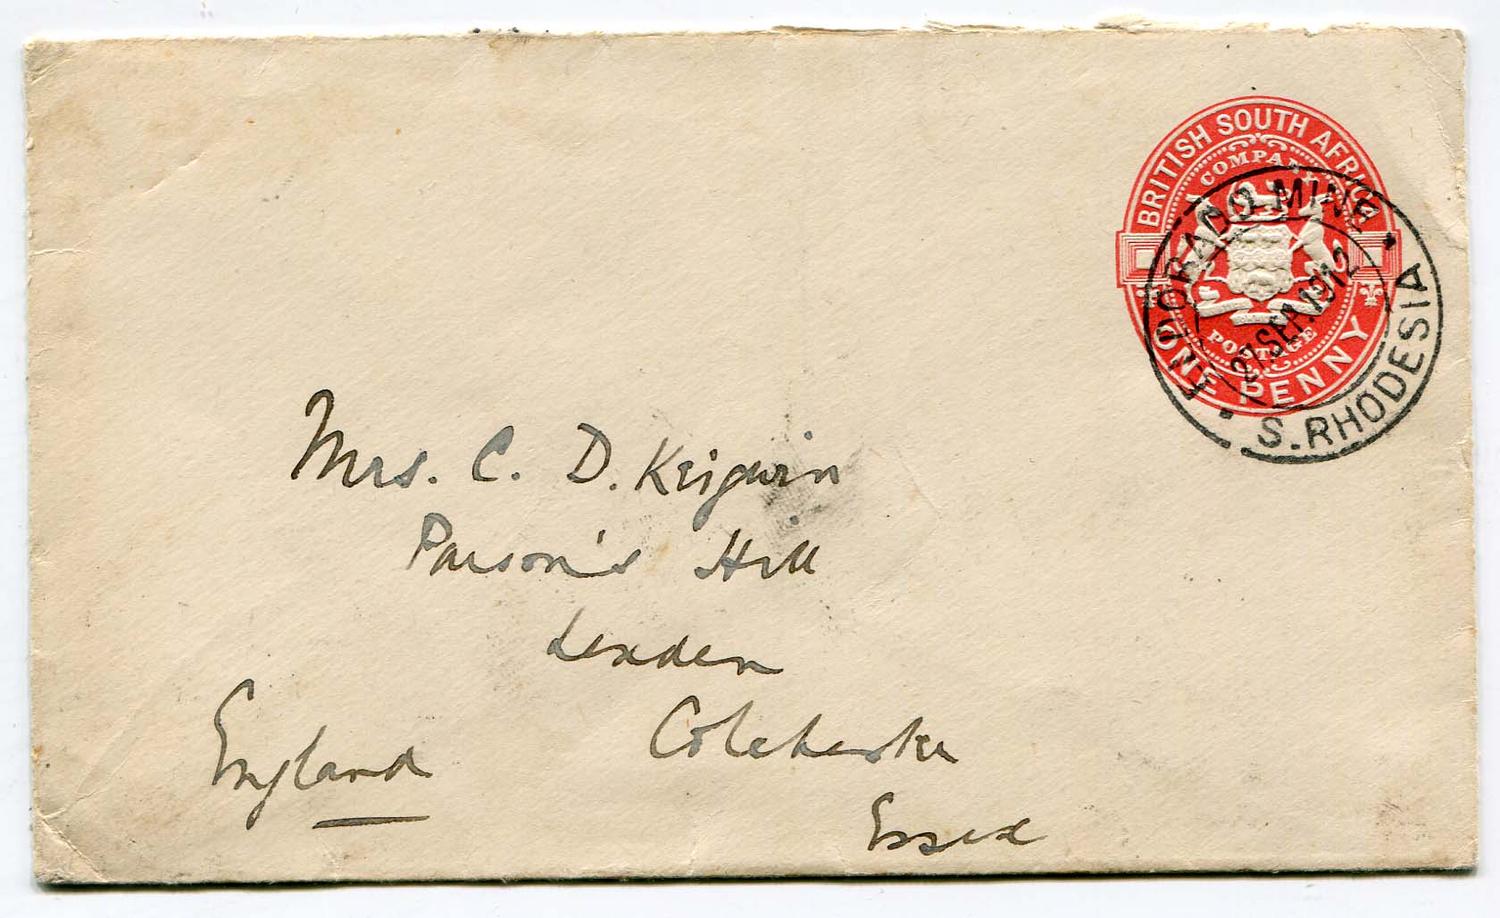 BRITISH SOUTH AFRICA
COMPANY
POSTAGE
ONE PENNY
ELDORADO MINE
27.SEP.1912
S. RHODESIA
Mrs. C. D. Keigwin
Parson's Hill
Lexden
Colchester
Essex
England